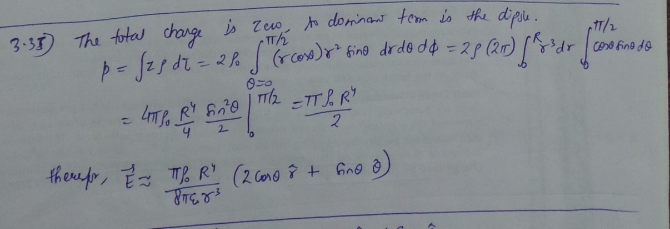 3.35) The total charge is zero, so dominant term is the dipole.
p = ∫zρ dτ = 2ρ₀ ∫_{θ=0}^{π/2} (r cosθ) r² sinθ dr dθ dφ = 2ρ (2π) ∫_0^R r³dr ∫_0^{π/2} cosθ sinθ dθ
= 4πρ₀ R⁴/4 sin²θ/2 |_0^{π/2} = πρ₀R⁴/2
E⃗ ≈ πρ₀R⁴/8πε₀r³ (2cosθ r̂ + sinθ θ̂)